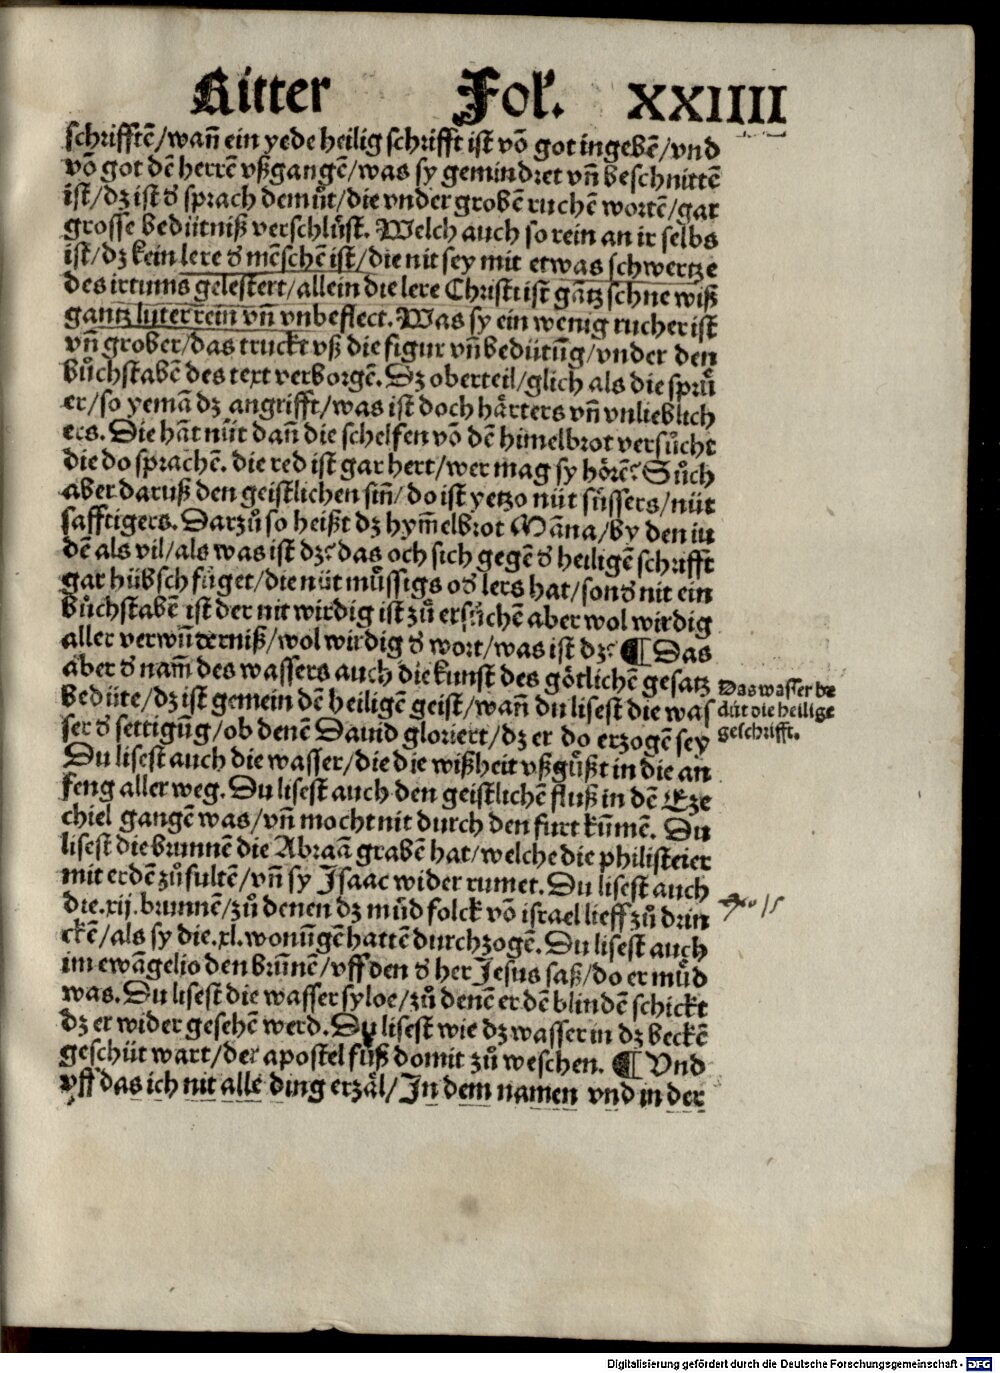 Ritter Fol. XXIIII
schrifftē/wañ ein yede heilig schrifft ist vō got ingebē/vnd
vō got dē herrē vßgangē/was sy gemindret vñ beschnittē
ist/dz ist d̄ sprach demůt/die vnder grobē ruchē wortē/gar
grosse bedütniß verschlüst. Welch auch so rein an ir selbs
ist/dz kein lere d̄ mēschē ist/die nit sey mit etwas schwertze
des irtums gelestert/allein die lere Christi ist gātz schne wiß
gantz luter rein vñ vnbeflect. Was sy ein wenig rucher ist
vñ grober/das truckt vß die figur vñ bedütūg/vnder den
bůchstabē des text verborgē. Dz oberteil/glich als die sprů
er/so yemā dz angrifft/was ist doch hårters vñ vnlieblich
ers. Die hāt nüt dañ die schelfen vō dē himelbrot versůcht
die do sprachē. die red ist gar hert/wer mag sy hörē? Sůch
aber daruß den geistlichen siñ/do ist yetzo nüt süssers/nüt
safftigers. Darzů so heißt dz hym̄elbrot Māna/by den iu
dē als vil/als was ist dz? das och sich gegē d̄ heiligē schrifft
gar hübsch füget/die nüt můssigs od̄ lers hat/sond̄ nit ein
bůchstabē ist der nit wirdig ist zů ersůchē aber wol wirdig
aller verwūderniß/wol wirdig d̄ wort/was ist dz? ¶ Das
aber d̄ nam̄ des wassers auch die kunst des götlichē gesatz
bedüte/dz ist gemein dē heiligē geist/wañ du lisest die was
ser d̄ settigūg/ob denē Dauid gloriert/dz er do erzogē sey
Du lisest auch die wasser/die die wißheit vßgüßt in die an
feng aller weg. Du lisest auch den geistlichē fluß in dē Eze
chiel gangē was/vñ mocht nit durch den furt kūmē. Du
lisest die brunnē die Abraā grabē hat/welche die philisteier
mit erdē zůfultē/vñ sy Isaac wider rumet. Du lisest auch
die .xij. brunnē/zů denen dz můd folck vō israel lieff zů drin
ckē/als sy die .xl. wonūgē hattē durchzogē. Du lisest auch
im ewāgelio den brūnē/vff den d̄ her Jesus saß/do er můd
was. Du lisest die wasser syloe/zů denē er dē blindē schickt
dz er wider gesehē werd. Du lisest wie dz wasser in dz beckē
geschüt wart/der apostel fůß domit zů weschen. ¶ Vnd
vff das ich nit alle ding erzål/In dem namen vnd in der
Das wasser be
düt die heilige
geschrifft.
Digitalisierung gefördert durch die Deutsche Forschungsgemeinschaft - DFG